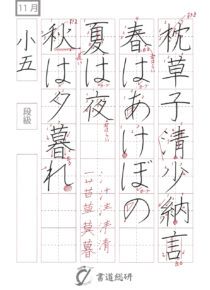 11月
枕草子 清少納言
春はあけぼの
夏は夜
秋は夕暮れ
小五
段級
書道総研